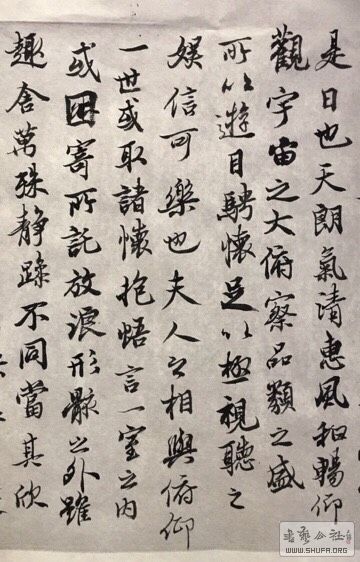 是日也天朗氣清惠風和暢仰
觀宇宙之大俯察品類之盛
所以遊目騁懷足以極視聽之
娛信可樂也夫人之相與俯仰
一世或取諸懷抱悟言一室之内
或因寄所託放浪形骸之外雖
趣舎萬殊静躁不同當其欣
書藝公社
WWW.SHUFA.ORG